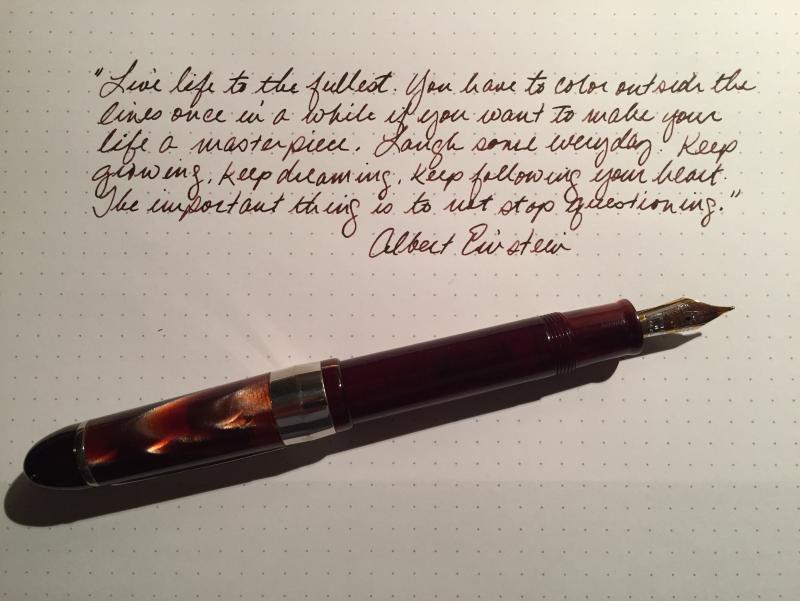 "Live life to the fullest. You have to color outside the
lines once in a while if you want to make your
life a masterpiece. Laugh some everyday. Keep
growing, keep dreaming, keep following your heart.
The important thing is to not stop questioning."
Albert Einstein